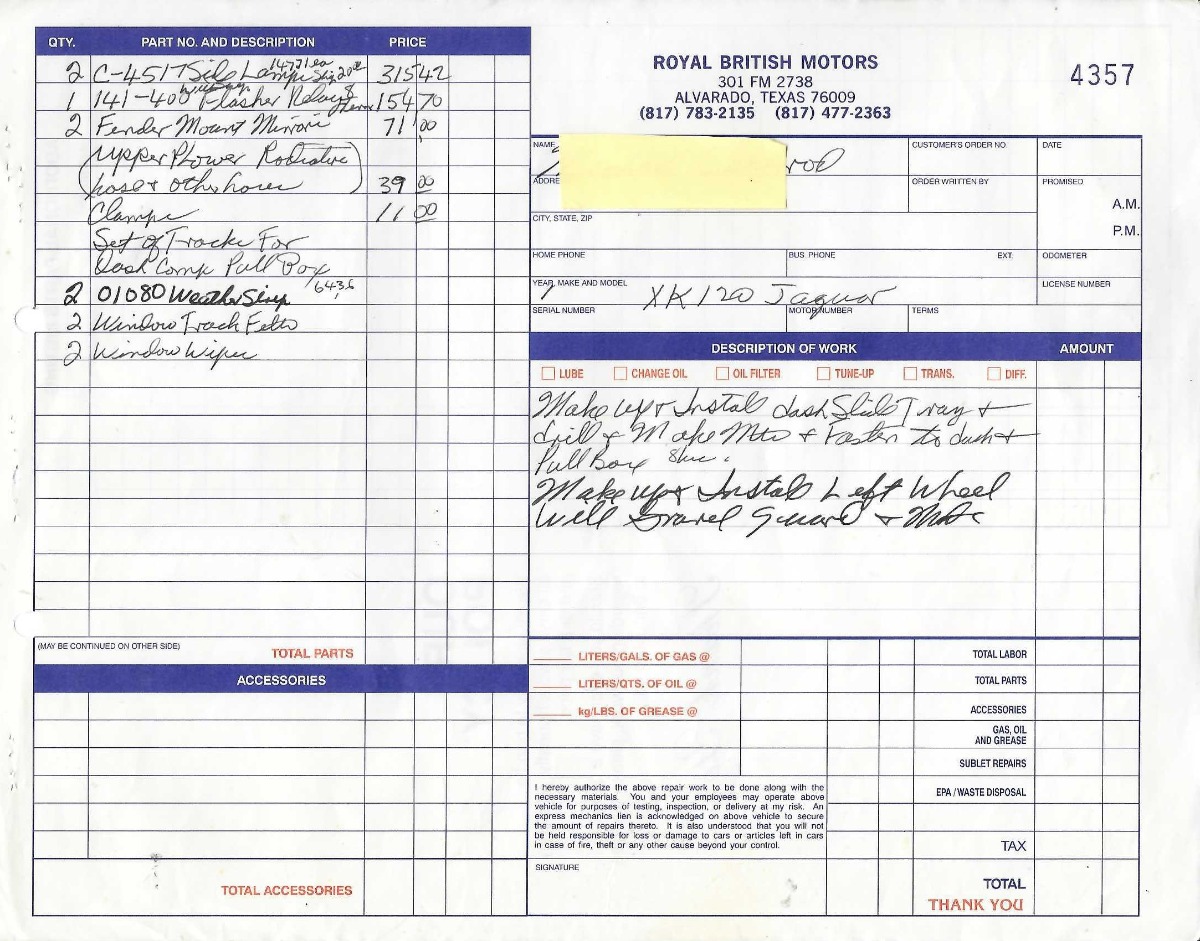 QTY. PART NO. AND DESCRIPTION PRICE
2 C-4517 Side Lamps 147.71 ea 315 42
1 141-400 Flasher Relay & 154 70
2 Fender Mount Mirrors 71 00
(Upper & Lower Radiator
hose & other hoses) 39 00
Clamps 11 00
Set of Tracks For
Dash Comp Pull Box
2 01080 Weather Strip 64.36
2 Window Track Felts
2 Window Wiper
(MAY BE CONTINUED ON OTHER SIDE) TOTAL PARTS
ACCESSORIES
TOTAL ACCESSORIES
ROYAL BRITISH MOTORS
301 FM 2738
ALVARADO, TEXAS 76009
(817) 783-2135 (817) 477-2363
4357
NAME rod CUSTOMER'S ORDER NO. DATE
ADDRE ORDER WRITTEN BY PROMISED
A.M.
CITY, STATE, ZIP
P.M.
HOME PHONE BUS. PHONE EXT. ODOMETER
YEAR, MAKE AND MODEL XK120 Jaguar LICENSE NUMBER
SERIAL NUMBER MOTOR NUMBER TERMS
DESCRIPTION OF WORK AMOUNT
LUBE CHANGE OIL OIL FILTER TUNE-UP TRANS. DIFF.
Make up & Instal dash Slide Tray &
drill & Make Mts & Fasten to dash &
Pull Box
Make up & Instal Left Wheel
Well Gravel Guard & Mts
LITERS/GALS. OF GAS @ TOTAL LABOR
LITERS/QTS. OF OIL @ TOTAL PARTS
kg/LBS. OF GREASE @ ACCESSORIES
GAS, OIL
AND GREASE
SUBLET REPAIRS
I hereby authorize the above repair work to be done along with the
necessary materials. You and your employees may operate above
vehicle for purposes of testing, inspection, or delivery at my risk. An
express mechanics lien is acknowledged on above vehicle to secure
the amount of repairs thereto. It is also understood that you will not
be held responsible for loss or damage to cars or articles left in cars
in case of fire, theft or any other cause beyond your control.
EPA / WASTE DISPOSAL
TAX
SIGNATURE
TOTAL
THANK YOU